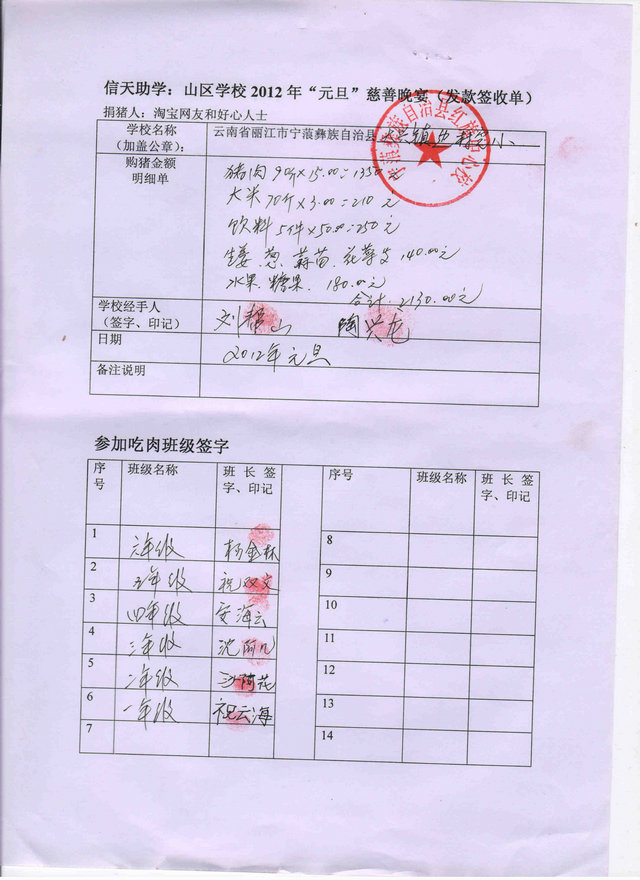 信天助学：山区学校2012年“元旦”慈善晚宴（发款签收单）
捐猪人：淘宝网友和好心人士
学校名称
（加盖公章）：
云南省丽江市宁蒗彝族自治县
镇 小
购猪金额
明细单
猪肉90斤×15.00=1350元
大米70斤×3.00=210元
饮料5件×50.00=250元
生姜、葱、蒜苗、140.00元
水果、糖果、180.00元
合计:2130.00元
学校经手人
（签字、印记）
刘 山 陶兴龙
日期
2012年元旦
备注说明
参加吃肉班级签字
序号 班级名称 班长签字、印记 序号 班级名称 班长签字、印记
1 六年级 杨金林 8
2 五年级 祝双文 9
3 四年级 安海云 10
4 三年级 沈阿几 11
5 二年级 沙阿花 12
6 一年级 祝云海 13
7 14